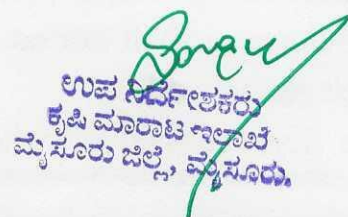 ಉಪ ನಿರ್ದೇಶಕರು
ಕೃಷಿ ಮಾರಾಟ ಇಲಾಖೆ
ಮೈಸೂರು ಜಿಲ್ಲೆ, ಮೈಸೂರು.